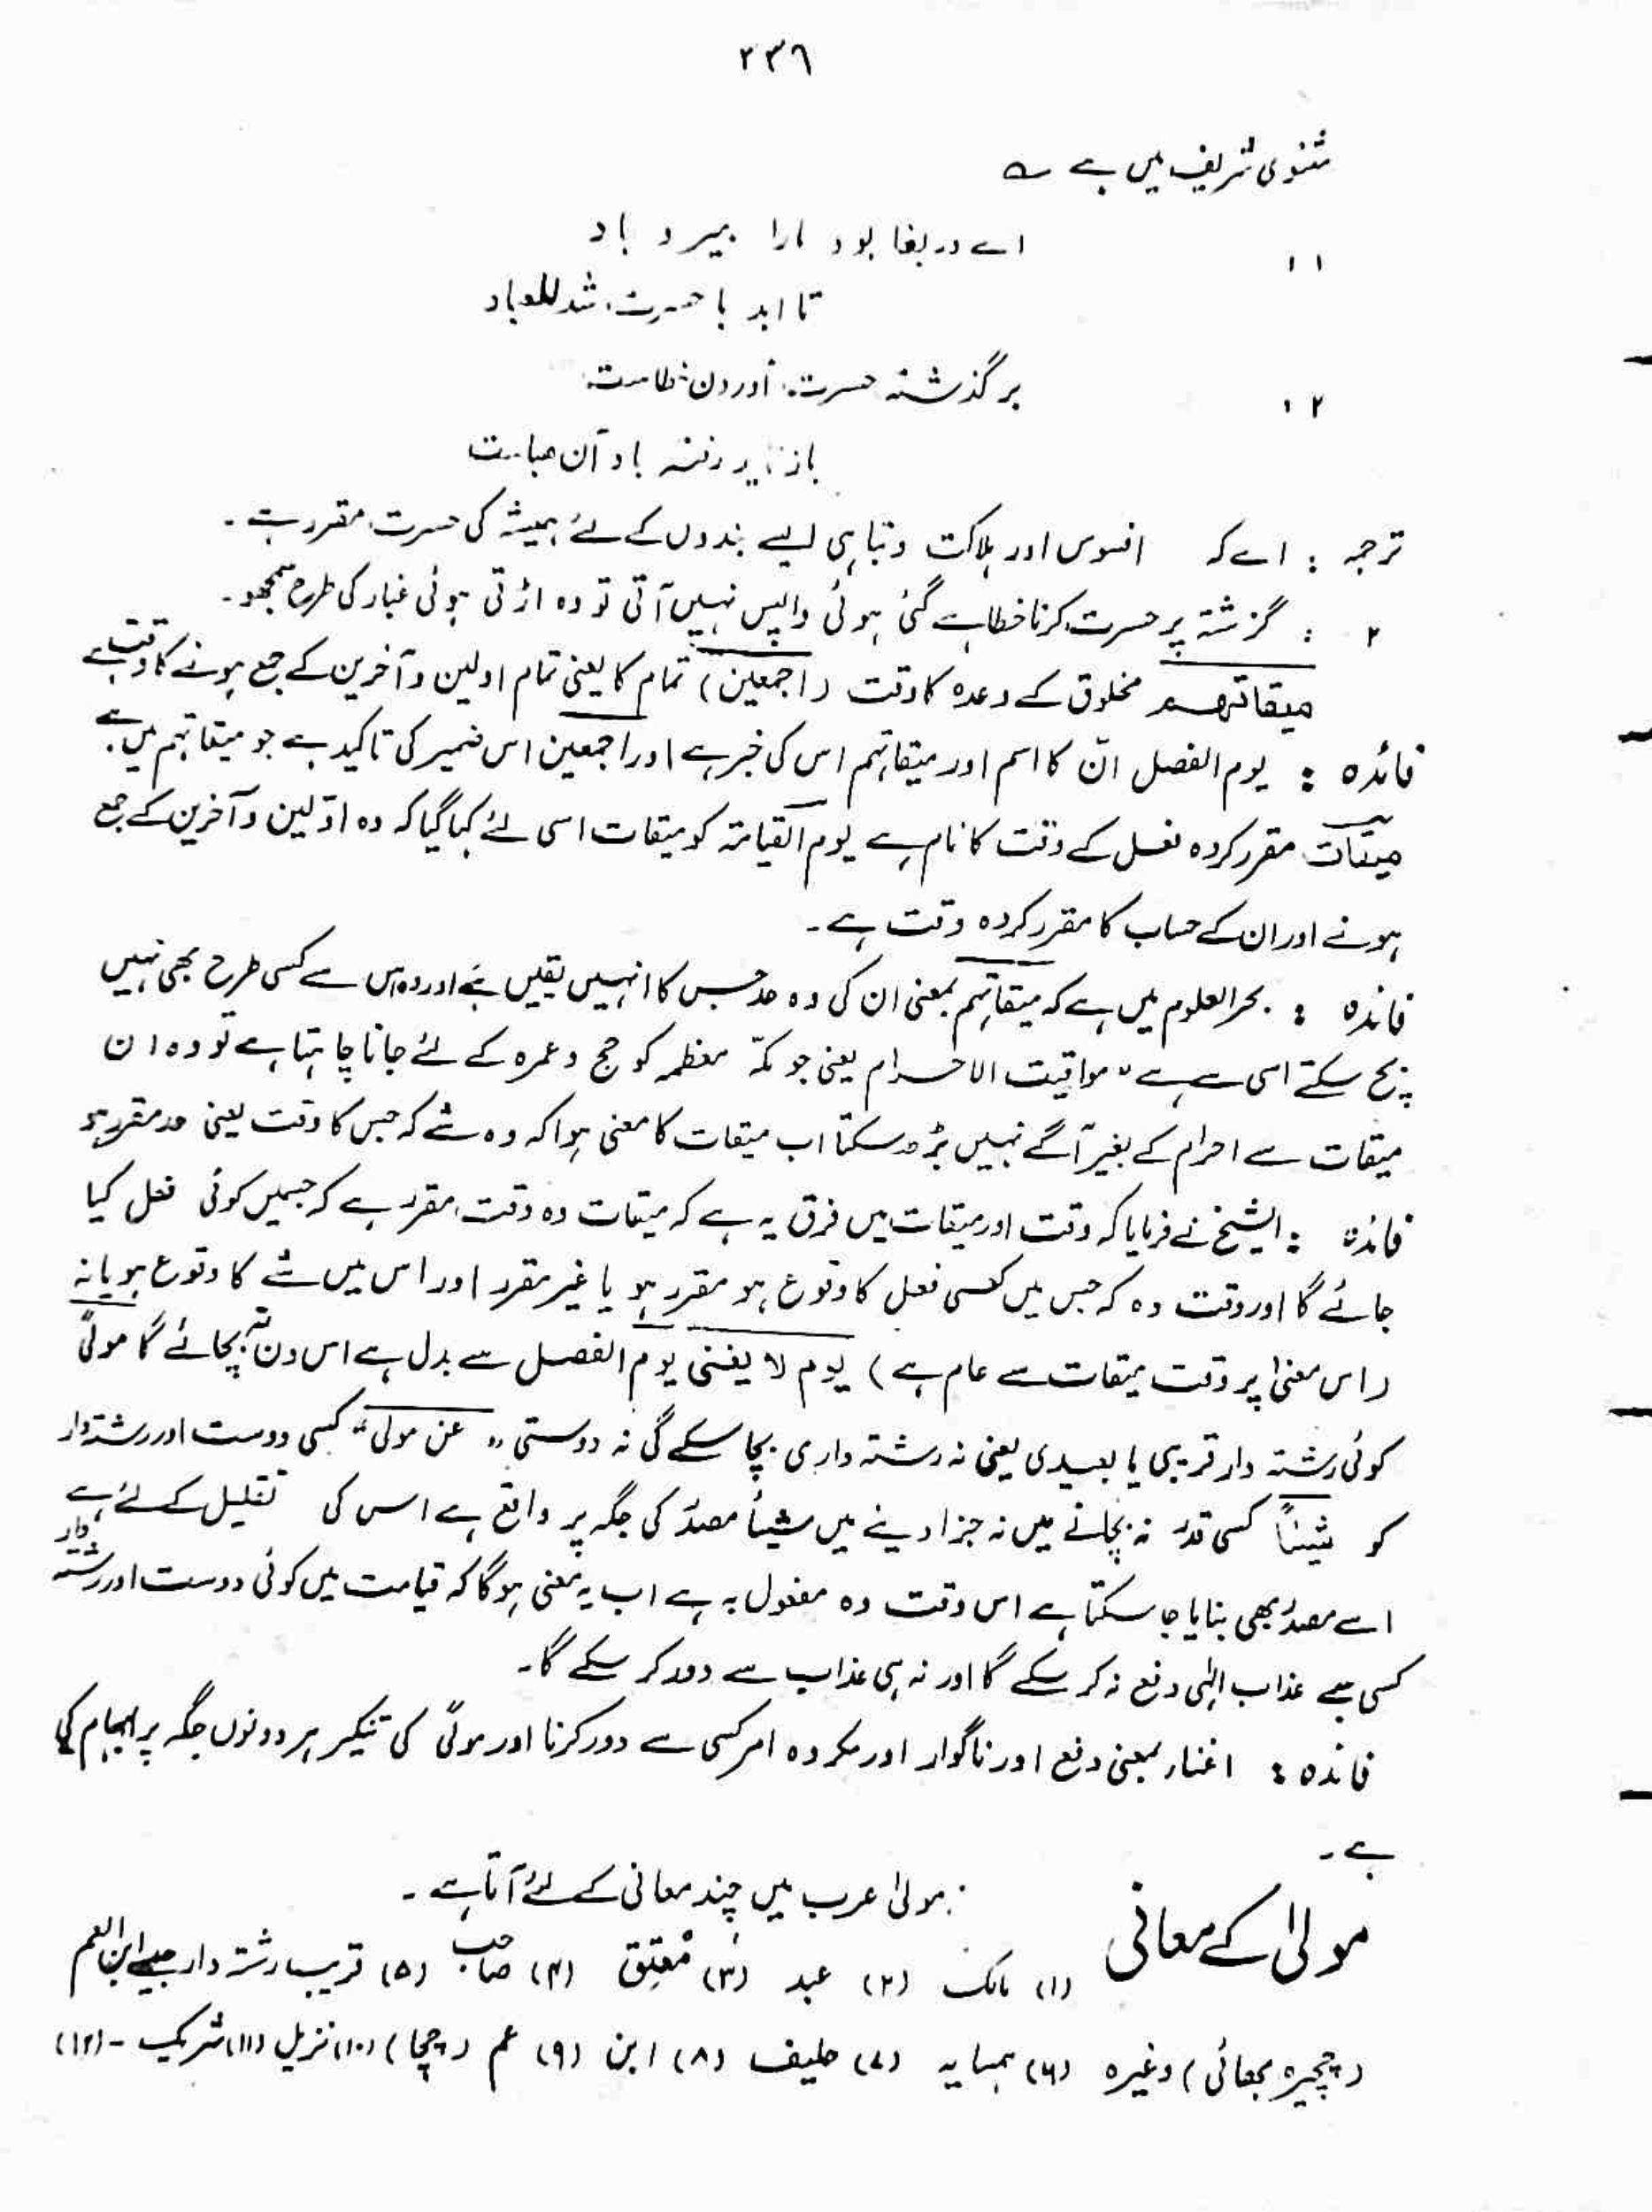 ۲۳۶
مثنوی شریف میں ہے ؎
۱۱ اے دریغا بود مارا ببرد باد
تا ابد یا حسرت شد للعباد
۲ ۱ بر گذشتہ حسرت آوردن خطاست
باز ناید رفتہ یاد آن هباست
ترجمہ : اے کہ افسوس اور ہلاکت و تباہی ایسے بندوں کے لئے ہمیشہ کی حسرت مقرر ہے۔
۲ : گزشتہ پر حسرت کرنا خطا ہے گئی ہوئی واپس نہیں آتی تو وہ اڑتی ہوئی غبار کی طرح سمجھو۔
میقاتہم مخلوق کے وعدہ کا وقت (اجمعین) تمام کا یعنی تمام اولین و آخرین کے جمع ہونے کا وقت ہے
فائدہ : یوم الفصل انّ کا اسم اور میقاتہم اس کی خبر ہے اور اجمعین اس ضمیر کی تاکید ہے جو میقاتہم میں ہے
میقات مقرر کردہ فعل کے وقت کا نام ہے یوم القیامۃ کو میقات اسی لئے کہا گیا کہ وہ اوّلین و آخرین کے جمع
ہونے اور ان کے حساب کا مقرر کردہ وقت ہے۔
فائدہ : بحر العلوم میں ہے کہ میقاتہم بمعنی ان کی وہ حد جس کا انہیں یقیں ہے اور وہ اس سے کسی طرح بھی نہیں
بچ سکتے اسی سے ہے " مواقیت الاحرام یعنی جو مکّہ معظمہ کو حج و عمرہ کے لئے جانا چاہتا ہے تو وہ ان
میقات سے احرام کے بغیر آگے نہیں بڑھ سکتا اب میقات کا معنی ہوا کہ وہ شے کہ جس کا وقت یعنی حد مقرر ہو
فائدہ : الشیخ نے فرمایا کہ وقت اور میقات میں فرق یہ ہے کہ میقات وہ وقت مقرر ہے کہ جسمیں کوئی فعل کیا
جائے گا اور وقت وہ کہ جس میں کسی فعل کا وقوع ہو مقرر ہو یا غیر مقرر اور اس میں شے کا وقوع ہو یا نہ
(اس معنیٰ پر وقت میقات سے عام ہے) یوم لا یغنی یوم الفصل سے بدل ہے اس دن نہ بچائے گا مولًی
کوئی رشتہ دار قریبی یا بعیدی یعنی نہ رشتہ داری بچا سکے گی نہ دوستی " عن مولی " کسی دوست اور رشتہ دار
کو شیئاً کسی قدر نہ بچانے میں نہ جزا دینے میں شیئاً مصدر کی جگہ پر واقع ہے اس کی تقلیل کے لئے ہے
اسے مصدر بھی بنایا جا سکتا ہے اس وقت وہ مفعول بہ ہے اب یہ معنی ہوگا کہ قیامت میں کوئی دوست اور رشتہ دار
کسی سے عذاب الٰہی دفع نہ کر سکے گا اور نہ ہی عذاب سے دور کر سکے گا۔
فائدہ : اغناء بمعنی دفع اور ناگوار اور مکروہ امر کسی سے دور کرنا اور مولًی کی تنکیر ہر دونوں جگہ پر ابہام کی
ہے۔
مولیٰ کے معانی : مولیٰ عرب میں چند معانی کے لئے آتا ہے۔
(۱) مالک (۲) عبد (۳) مُعْتِق (۴) صاحب (۵) قریب رشتہ دار جیسے ابن العم
(چچیرہ بھائی) وغیرہ (۶) ہمسایہ (۷) حلیف (۸) ابن (۹) عم (چچا) (۱۰) نزیل (۱۱) شریک - (۱۲)